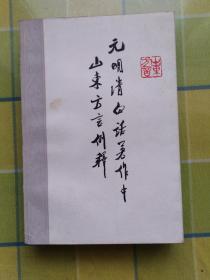 元明清白话著作中
山东方言例释